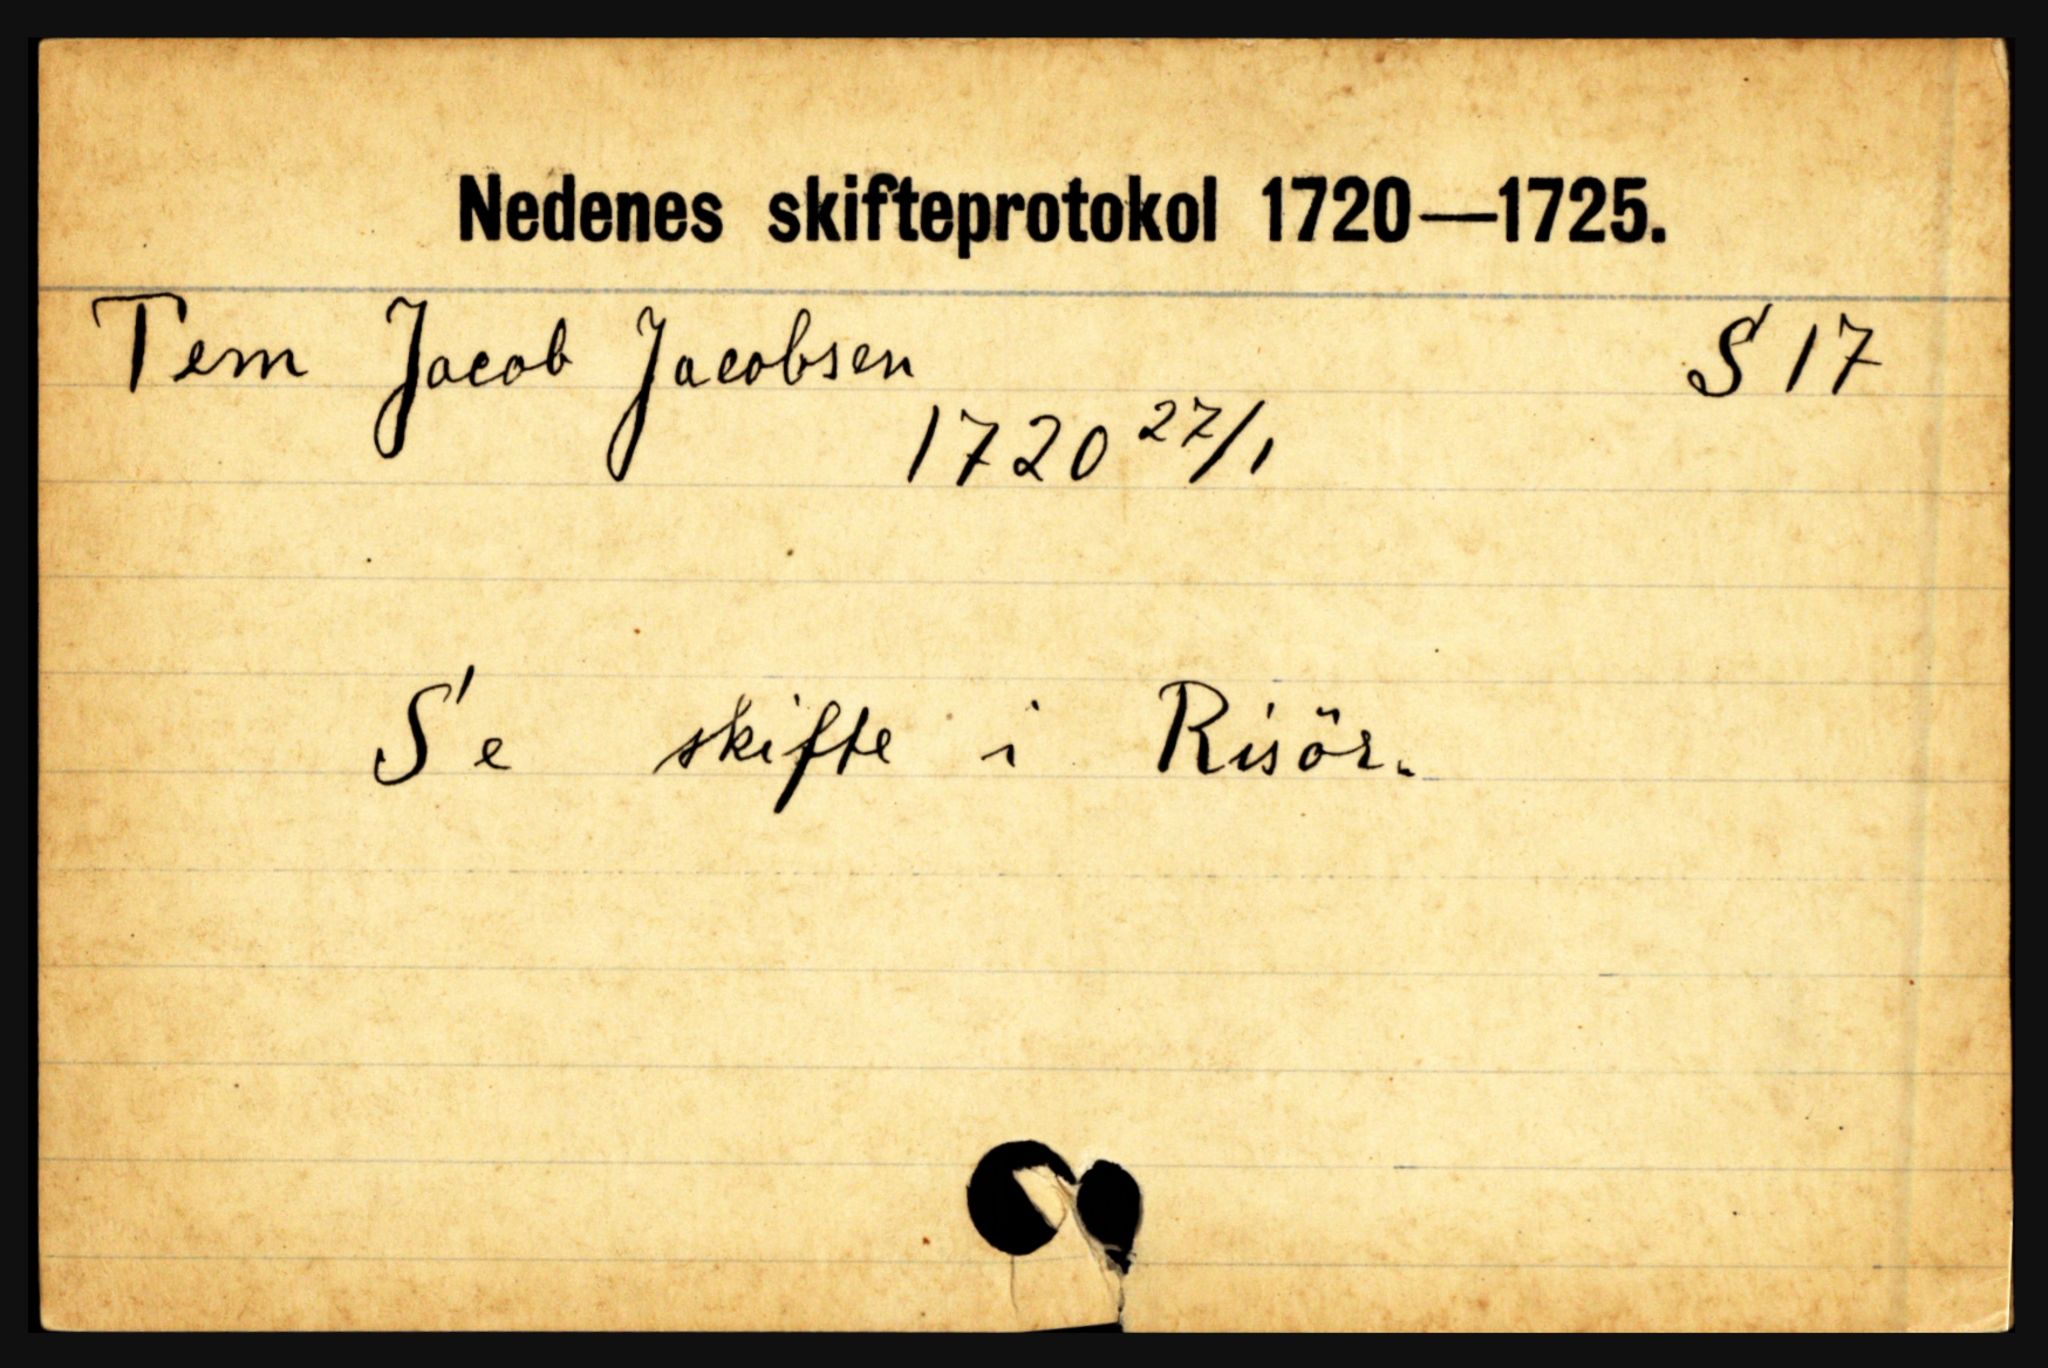 Nedenes skifteprotokol 1720—1725.
Tem Jacob Jacobsen S 17
1720 27/1
Se skifte i Risör.